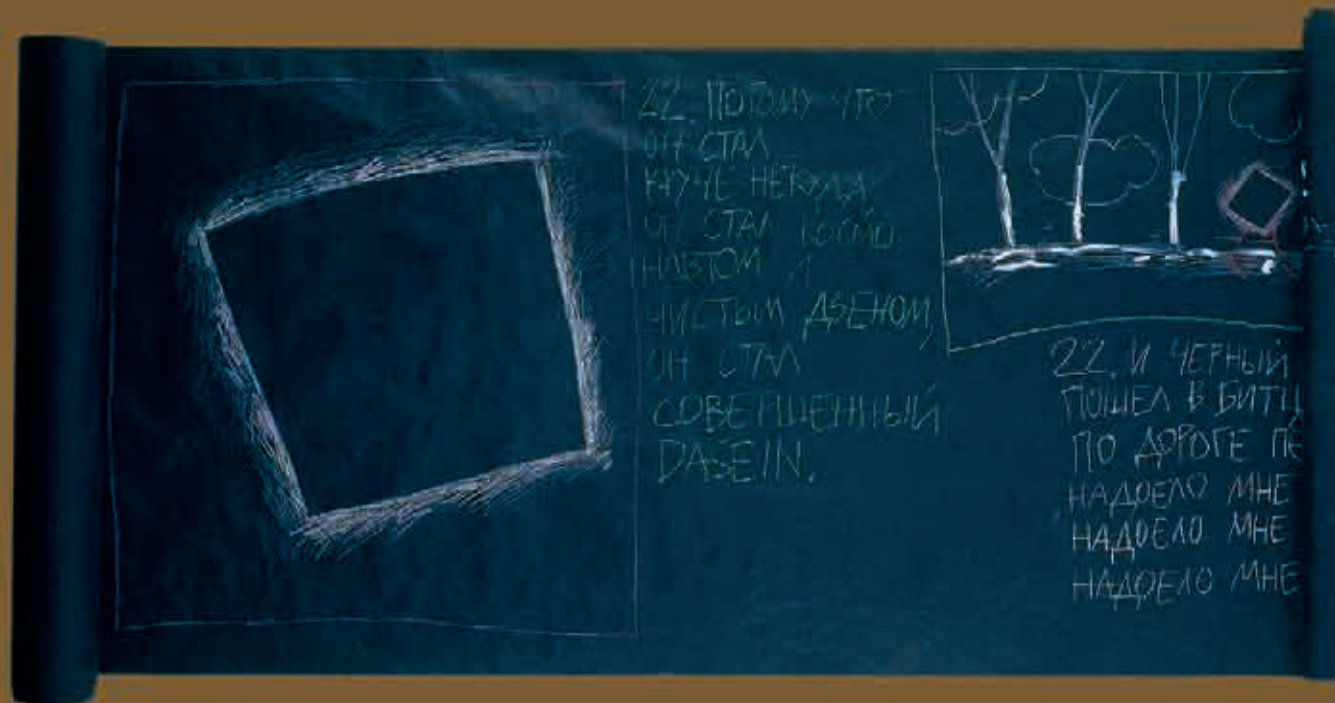 22. ПОТОМУ ЧТО
ОН СТАЛ
КРУЧЕ НЕКУДА,
ОН СТАЛ КОСМО-
НАВТОМ И
ЧИСТЫМ ДЗЕНОМ,
ОН СТАЛ
СОВЕРШЕННЫЙ
DASEIN.
22. И ЧЕРНЫЙ
ПОШЕЛ В БИТЦ
ПО ДОРОГЕ ПЕ
НАДОЕЛО МНЕ
НАДОЕЛО МНЕ
НАДОЕЛО МНЕ